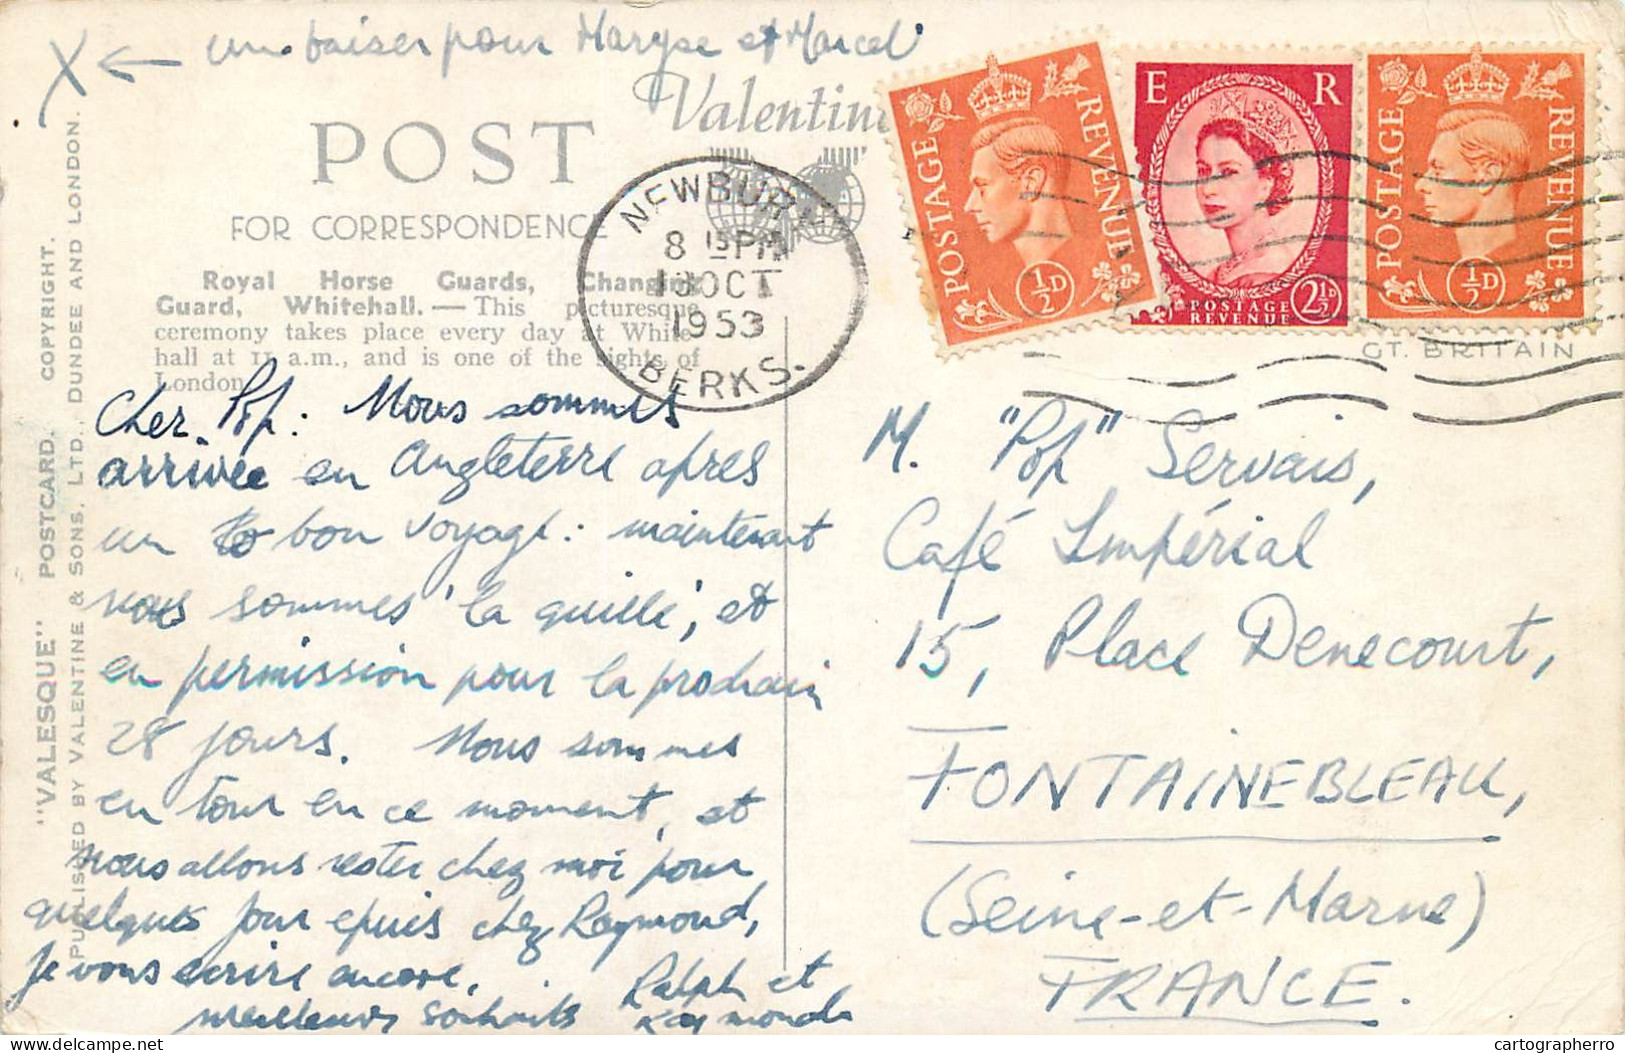 X ← un baiser pour Maryse et Marcel
Valentine
POST
FOR CORRESPONDENCE
Royal Horse Guards, Changing
Guard, Whitehall. — This picturesque
ceremony takes place every day at White
hall at 11 a.m., and is one of the sights of
London.
"VALESQUE" POSTCARD. COPYRIGHT.
PUBLISHED BY VALENTINE & SONS, LTD., DUNDEE AND LONDON.
NEWBURY
8 15 PM
13 OCT
1953
BERKS.
POSTAGE REVENUE
½D
E R
POSTAGE
REVENUE 2½D
POSTAGE REVENUE
½D
GT. BRITAIN
Cher Pop: Nous sommes
arrivée en Angleterre après
un bon voyage: maintenant
nous sommes 'la quille', et
en permission pour la prochain
28 jours. Nous sommes
en tour en ce moment, et
nous allons rester chez moi pour
quelques jour epuis chez Raymond,
Je vous ecrire encore,
meilleurs souhaits Ralph et
Raymond
M. "Pop" Servais,
Café Impérial
15, Place Denecourt,
FONTAINEBLEAU,
(Seine-et-Marne)
FRANCE.
delcampe.net
cartographerro